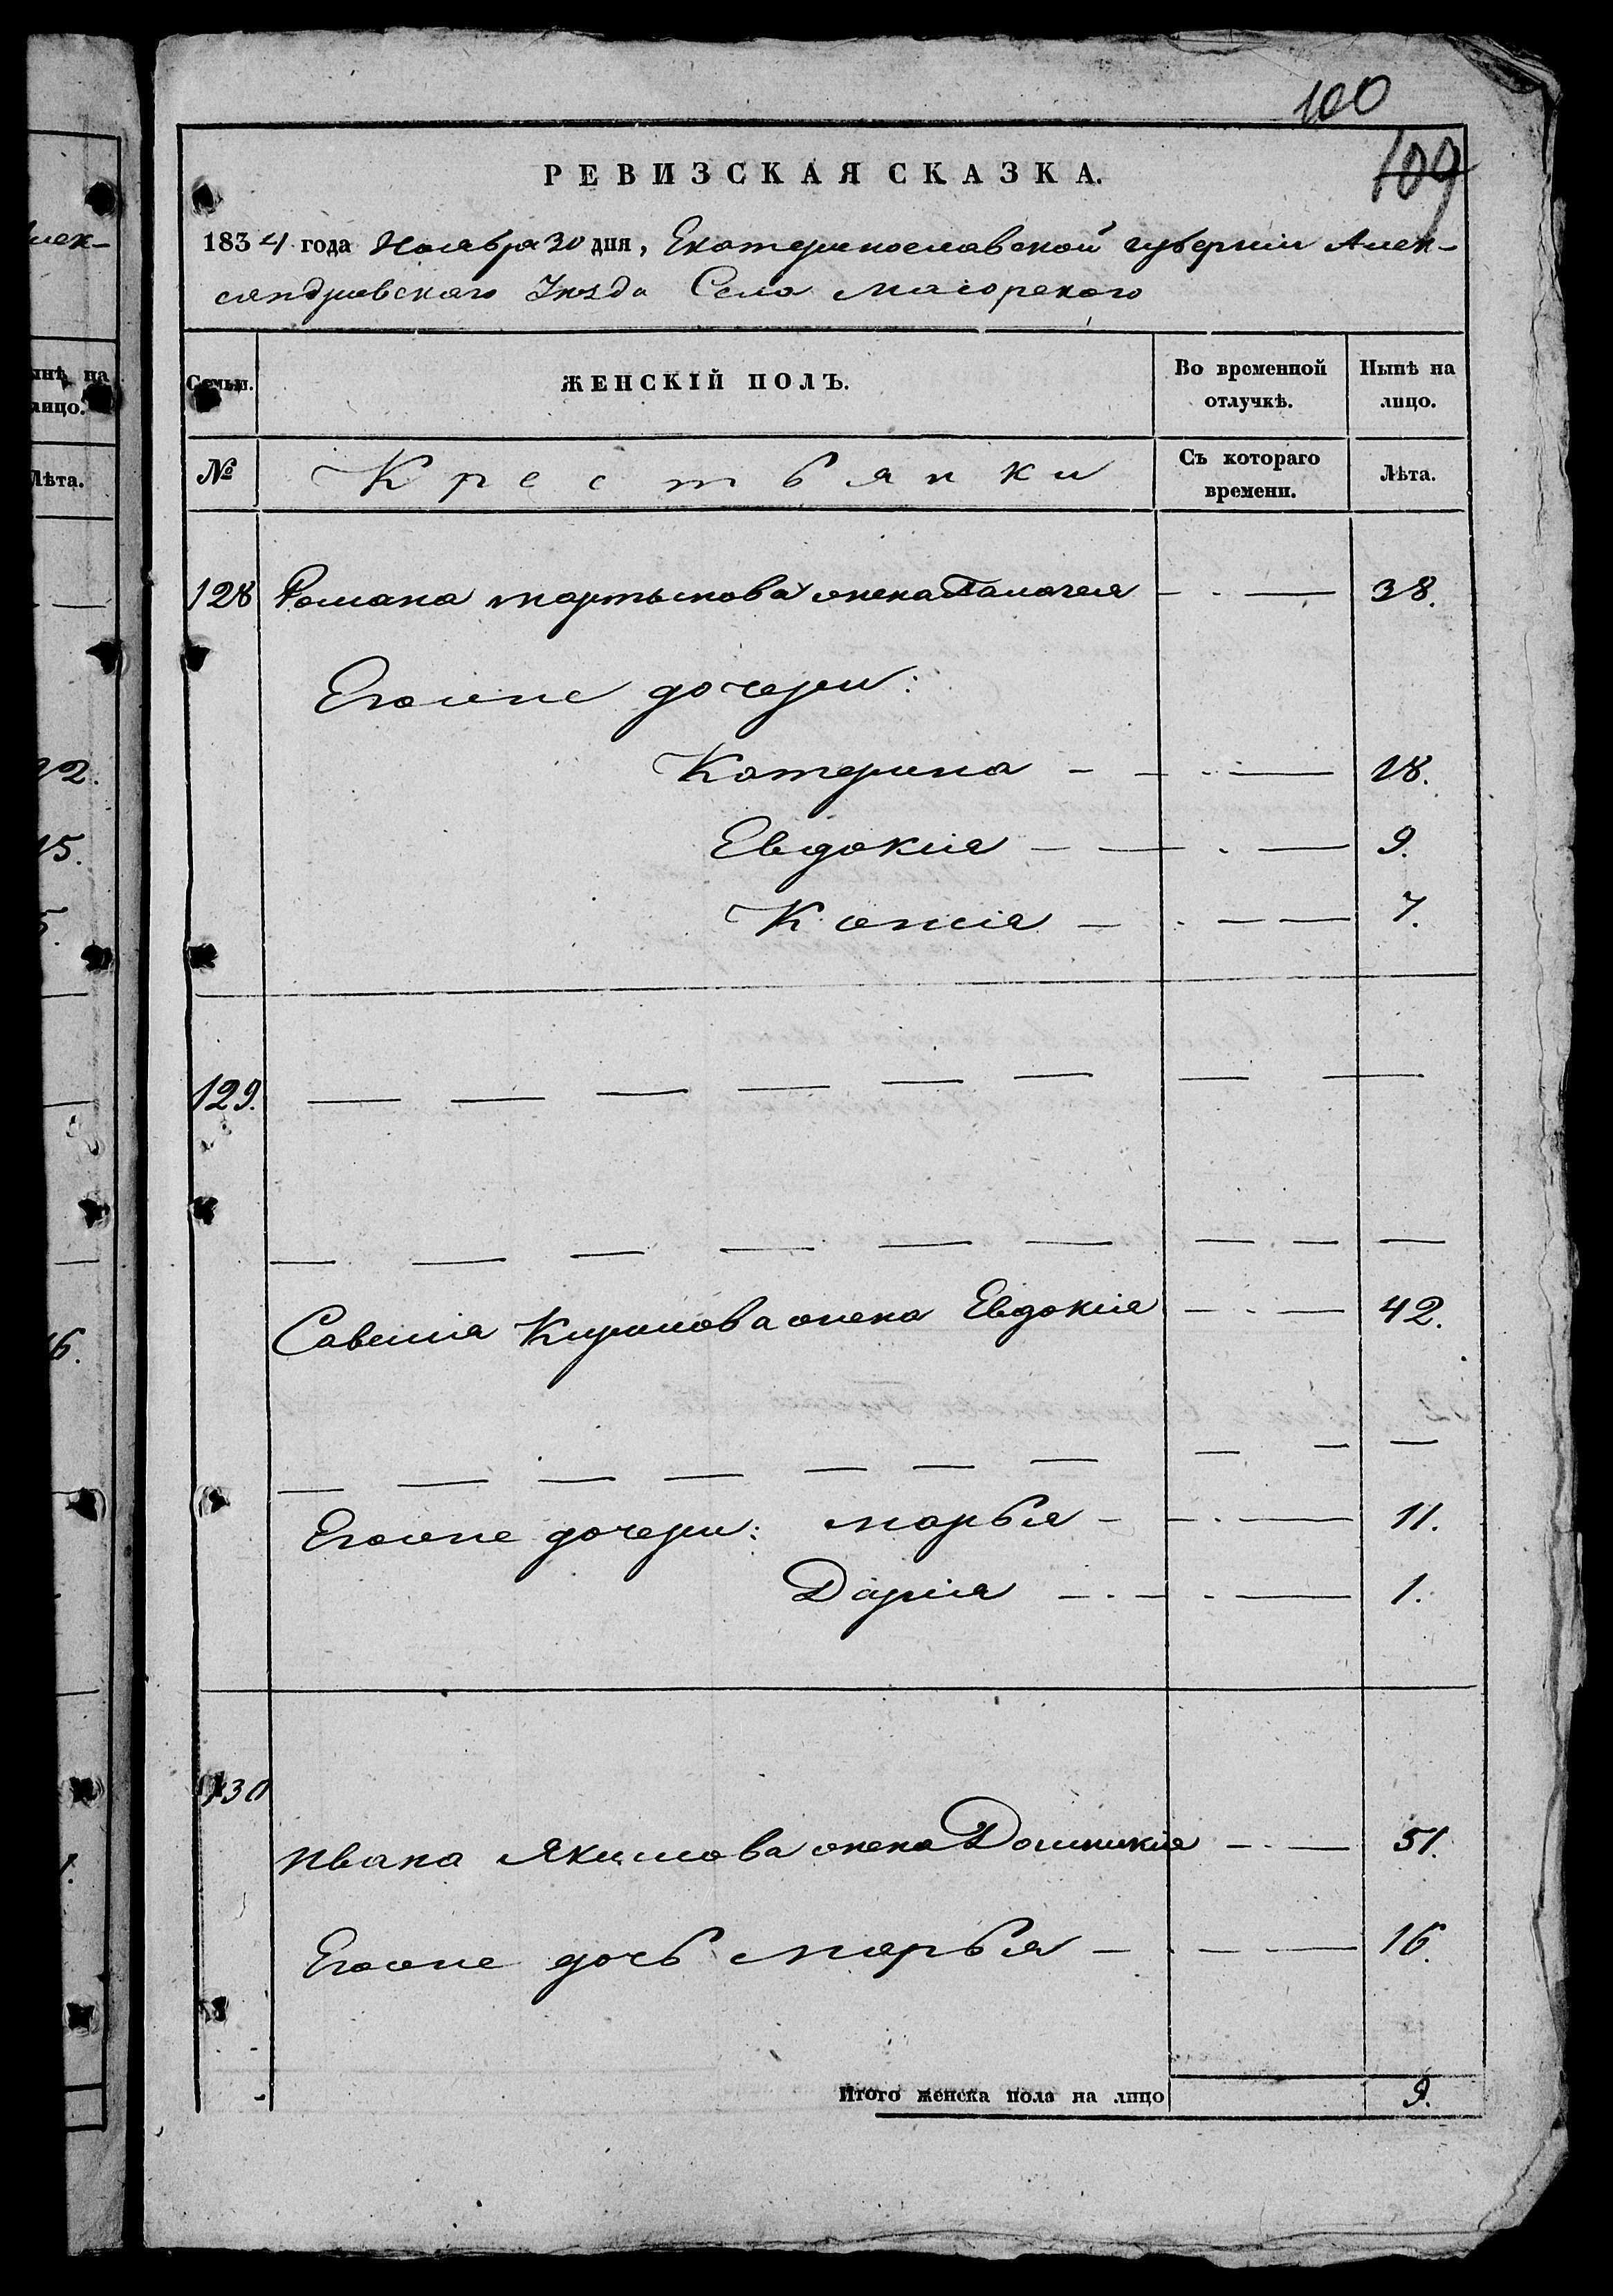 100
109
РЕВИЗСКАЯ СКАЗКА.
1834 года Ноября 30 дня, Екатеринославской губернiи Алек-
сандровскаго Уѣзда Села Маiорскаго
Семьи.
ЖЕНСКІЙ ПОЛЪ.
Во временной отлучкѣ.
Нынѣ на лицо.
№
Крестьянки
Съ котораго времени.
Лѣта.
128 Романа Мартынова жена Палагея — 38.
Егоже дочери:
Катерина — 18.
Евдокiя — 9.
Ксенiя — 7.
129.
Савелiя Кирилова жена Евдокiя — 42.
Егоже дочери: Марья — 11.
Дарiя — 1.
130
Ивана Якимова жена Домникiя — 51.
Егоже дочь Марья — 16.
Итого женска пола на лицо 9.